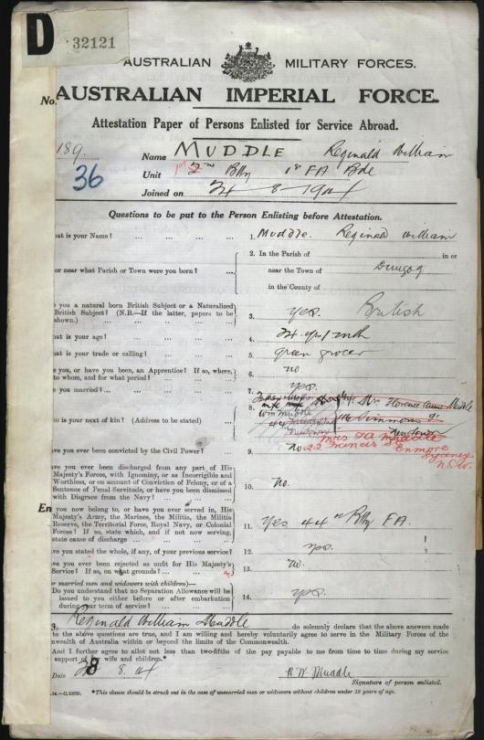 D 32121
AUSTRALIAN MILITARY FORCES.
No. AUSTRALIAN IMPERIAL FORCE.
Attestation Paper of Persons Enlisted for Service Abroad.
189 Name MUDDLE Reginald William
36 Unit 2nd Bty 1st FA Bde
Joined on 24-8-1914
Questions to be put to the Person Enlisting before Attestation.
hat is your Name? ... ... ... 1. Muddle. Reginald William
2. In the Parish of in or
or near what Parish or Town were you born? ... near the Town of Dungog
in the County of
e you a natural born British Subject or a Naturalized
British Subject? (N.B.—If the latter, papers to be 3. yes. British
shown.)
hat is your age? ... ... ... 4. 24 yrs 1 mth
hat is your trade or calling? ... ... 5. green grocer
e you, or have you been, an Apprentice? If so, where, 6. no
to whom, and for what period?
e you married? ... ... ... 7. yes.
8. Mrs Florence Muddle
Wm Muddle
o is your next of kin? (Address to be stated)
Newtown
Mrs F A Muddle
ave you ever been convicted by the Civil Power? ... 9. no 22 Francis St Enmore
Sydney
N.S.W.
ave you ever been discharged from any part of His
Majesty's Forces, with Ignominy, or as Incorrigible and
Worthless, or on account of Conviction of Felony, or of a 10. no.
Sentence of Penal Servitude, or have you been dismissed
with Disgrace from the Navy?
En you now belong to, or have you ever served in, His
Majesty's Army, the Marines, the Militia, the Militia
Reserve, the Territorial Force, Royal Navy, or Colonial 11. Yes 44th Bty FA.
Forces? If so, state which, and if not now serving,
state cause of discharge
ave you stated the whole, if any, of your previous service? 12. yes.
ave you ever been rejected as unfit for His Majesty's 13. no.
Service? If so, on what grounds?
r married men and widowers with children)—
Do you understand that no Separation Allowance will be
issued to you either before or after embarkation 14. yes.
during your term of service?
Reginald William Muddle do solemnly declare that the above answers made
to the above questions are true, and I am willing and hereby voluntarily agree to serve in the Military Forces of the
wealth of Australia within or beyond the limits of the Commonwealth.
And I further agree to allot not less than two-fifths of the pay payable to me from time to time during my service
support of wife and children.*
Date 8.14 R W Muddle
Signature of person enlisted.
*This clause should be struck out in the case of unmarried men or widowers without children under 18 years of age.